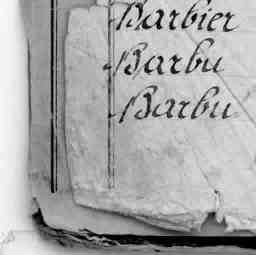 Barbier
Barbu
Barbu